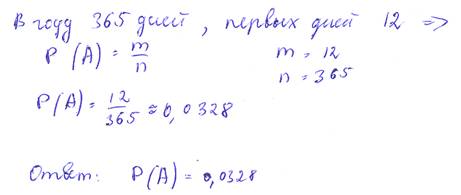 В году 365 дней, первых дней 12 =>
P(A) = m/n m = 12
n = 365
P(A) = 12/365 ≈ 0,0328
Ответ: P(A) = 0,0328